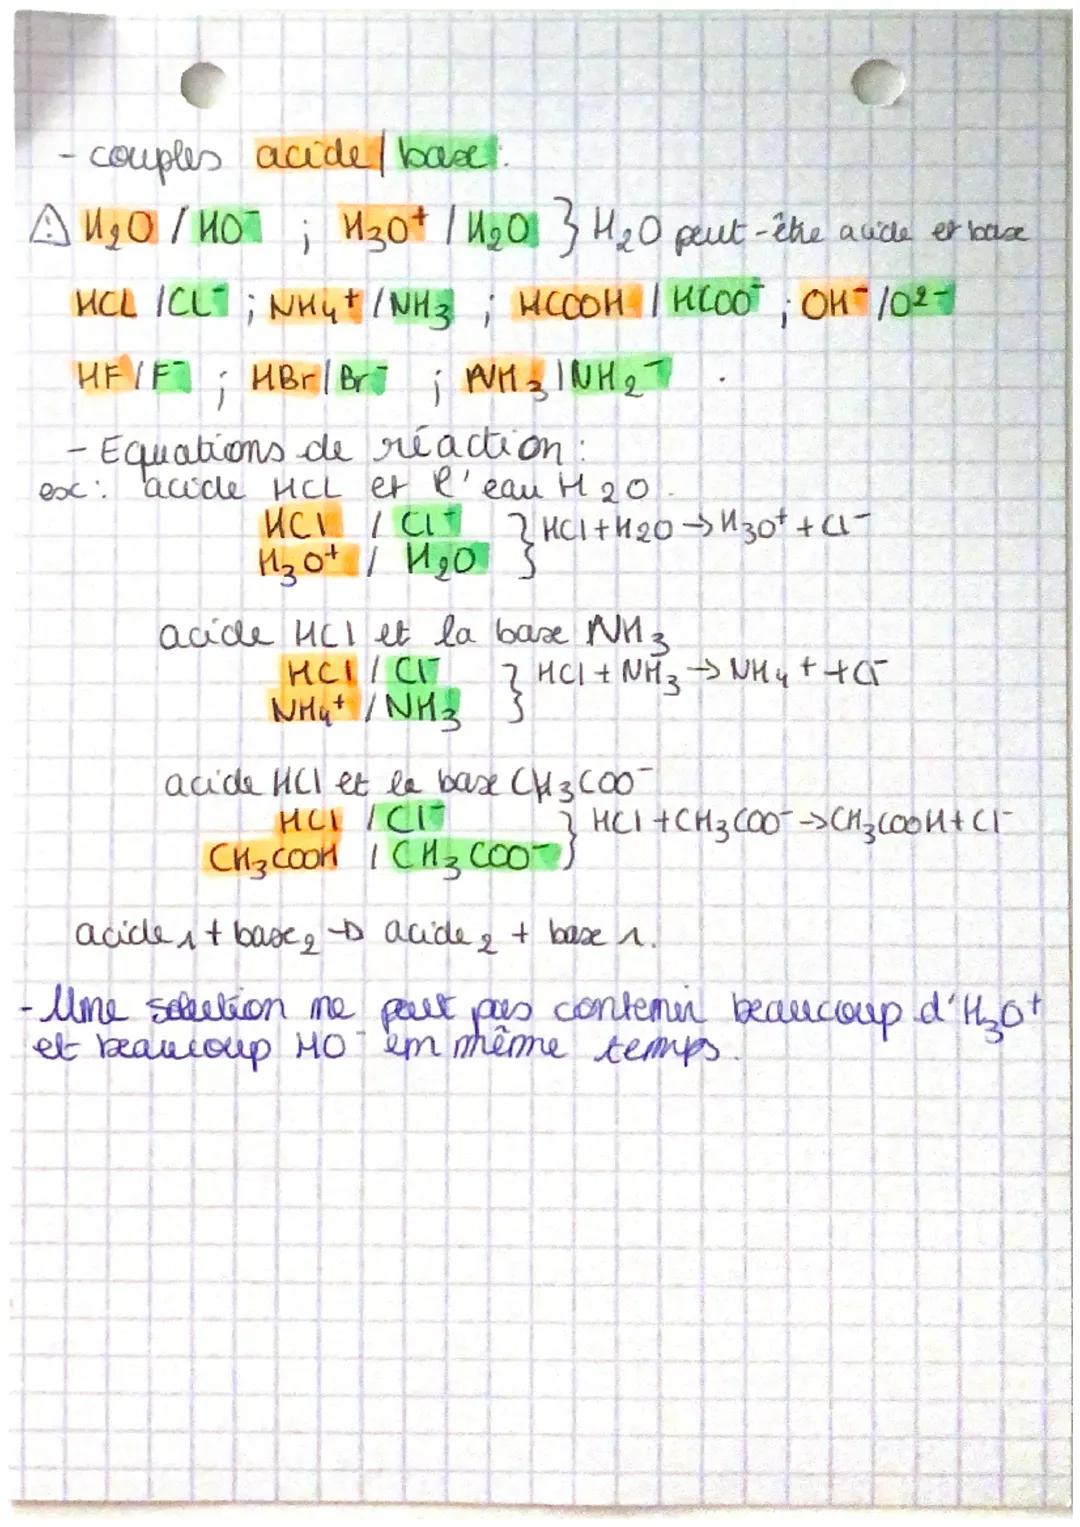 - couples acide/base:
⚠ H₂O / HO⁻ ; H₃O⁺ / H₂O } H₂O peut-être acide et base
HCL / CL⁻ ; NH₄⁺ / NH₃ ; HCOOH / HCOO⁻ ; OH⁻ / O²⁻
HF / F⁻ ; HBr / Br⁻ ; NH₃ / NH₂⁻ .
- Equations de réaction :
ex : acide HCL et l'eau H₂O.
HCl / Cl⁻ } HCl + H₂O → H₃O⁺ + Cl⁻
H₃O⁺ / H₂O
acide HCl et la base NH₃
HCl / Cl⁻ } HCl + NH₃ → NH₄⁺ + Cl⁻
NH₄⁺ / NH₃
acide HCl et la base CH₃COO⁻
HCl / Cl⁻ } HCl + CH₃COO⁻ → CH₃COOH + Cl⁻
CH₃COOH / CH₃COO⁻
acide₁ + base₂ → acide₂ + base₁.
- Une solution ne peut pas contenir beaucoup d'H₃O⁺
et beaucoup HO⁻ em même temps.